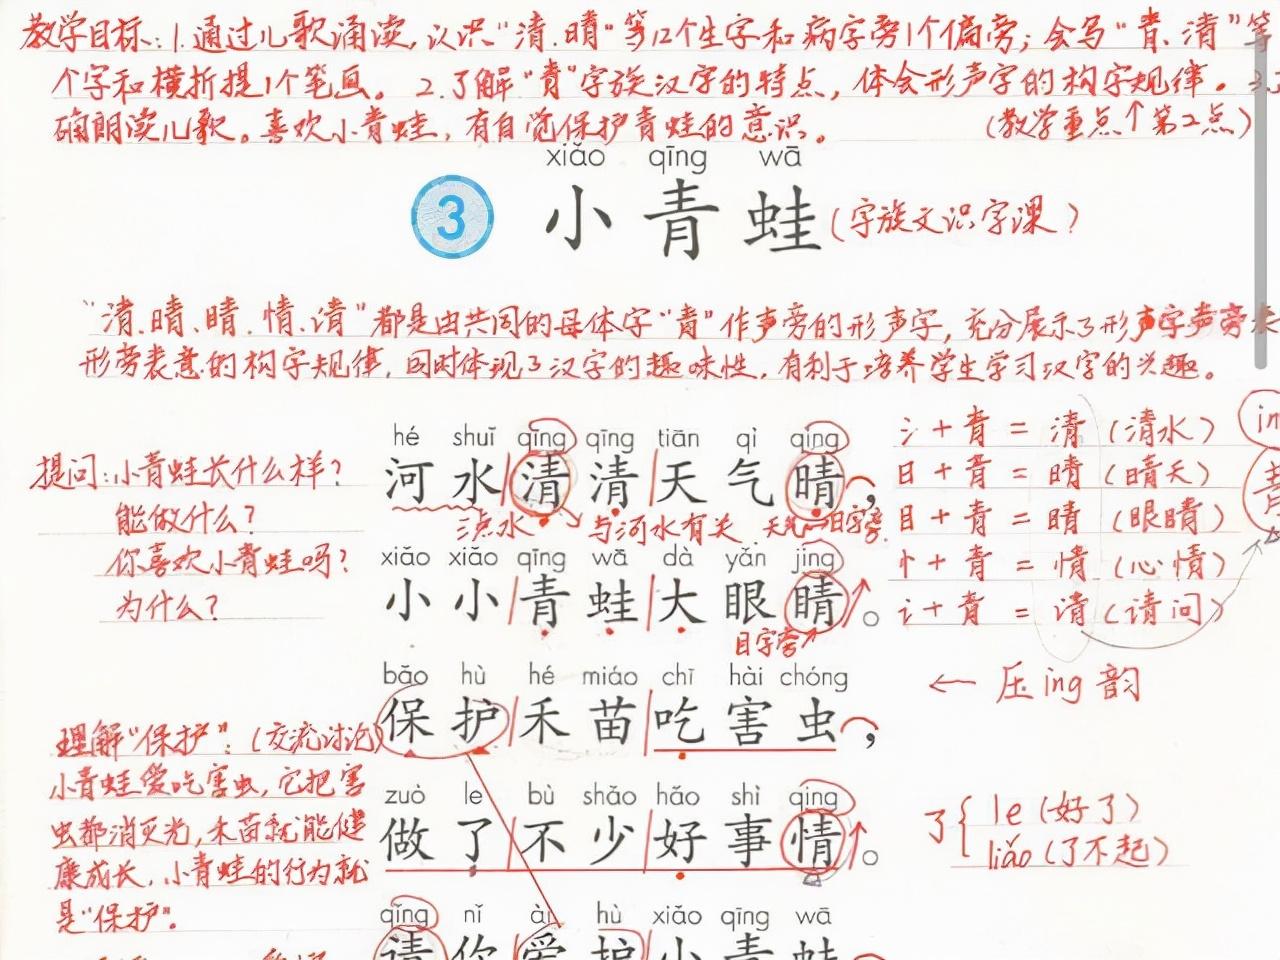 教学目标:1.通过儿歌诵读,认识"清、晴"等12个生字和病字旁1个偏旁;会写"青、清"等
个字和横折提1个笔画。2.了解"青"字族汉字的特点,体会形声字的构字规律。3.
确朗读儿歌。喜欢小青蛙,有自觉保护青蛙的意识。
(教学重点↑第2点)
xiǎo qīng wā
3 小青蛙
(字族文识字课)
"清、晴、睛、情、请"都是由共同的母体字"青"作声旁的形声字,充分展示了形声字声旁表
形旁表意的构字规律,同时体现了汉字的趣味性,有利于培养学生学习汉字的兴趣。
提问:小青蛙长什么样?
能做什么?
你喜欢小青蛙吗?
为什么?
hé shuǐ qīng qīng tiān qì qíng
河水清清天气晴,
三点水
与河水有关
天气→日字旁
xiǎo xiǎo qīng wā dà yǎn jīng
小小青蛙大眼睛。
目字旁
bǎo hù hé miáo chī hài chóng
保护禾苗吃害虫,
zuò le bù shǎo hǎo shì qing
做了不少好事情。
qǐng nǐ ài hù xiǎo qīng wā
请你爱护小青蛙
氵+青=清(清水)
日+青=晴(晴天)
目+青=睛(眼睛)
忄+青=情(心情)
讠+青=请(请问)
in
青
← 压ing韵
了{le(好了)
liǎo(了不起)
理解"保护":(交流讨论)
小青蛙爱吃害虫,它把害
虫都消灭光,禾苗就能健
康成长,小青蛙的行为就
是"保护"。